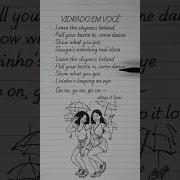 VIDRADO EM VOCÊ
Leave the shyness behind
Pull your bestie in, come dance
Show what you got,
watching real close
Leave the shyness behind
Pull your bestie in, come dance
Show what you got,
keeping an eye
Go on, go on, go on —
drop it low